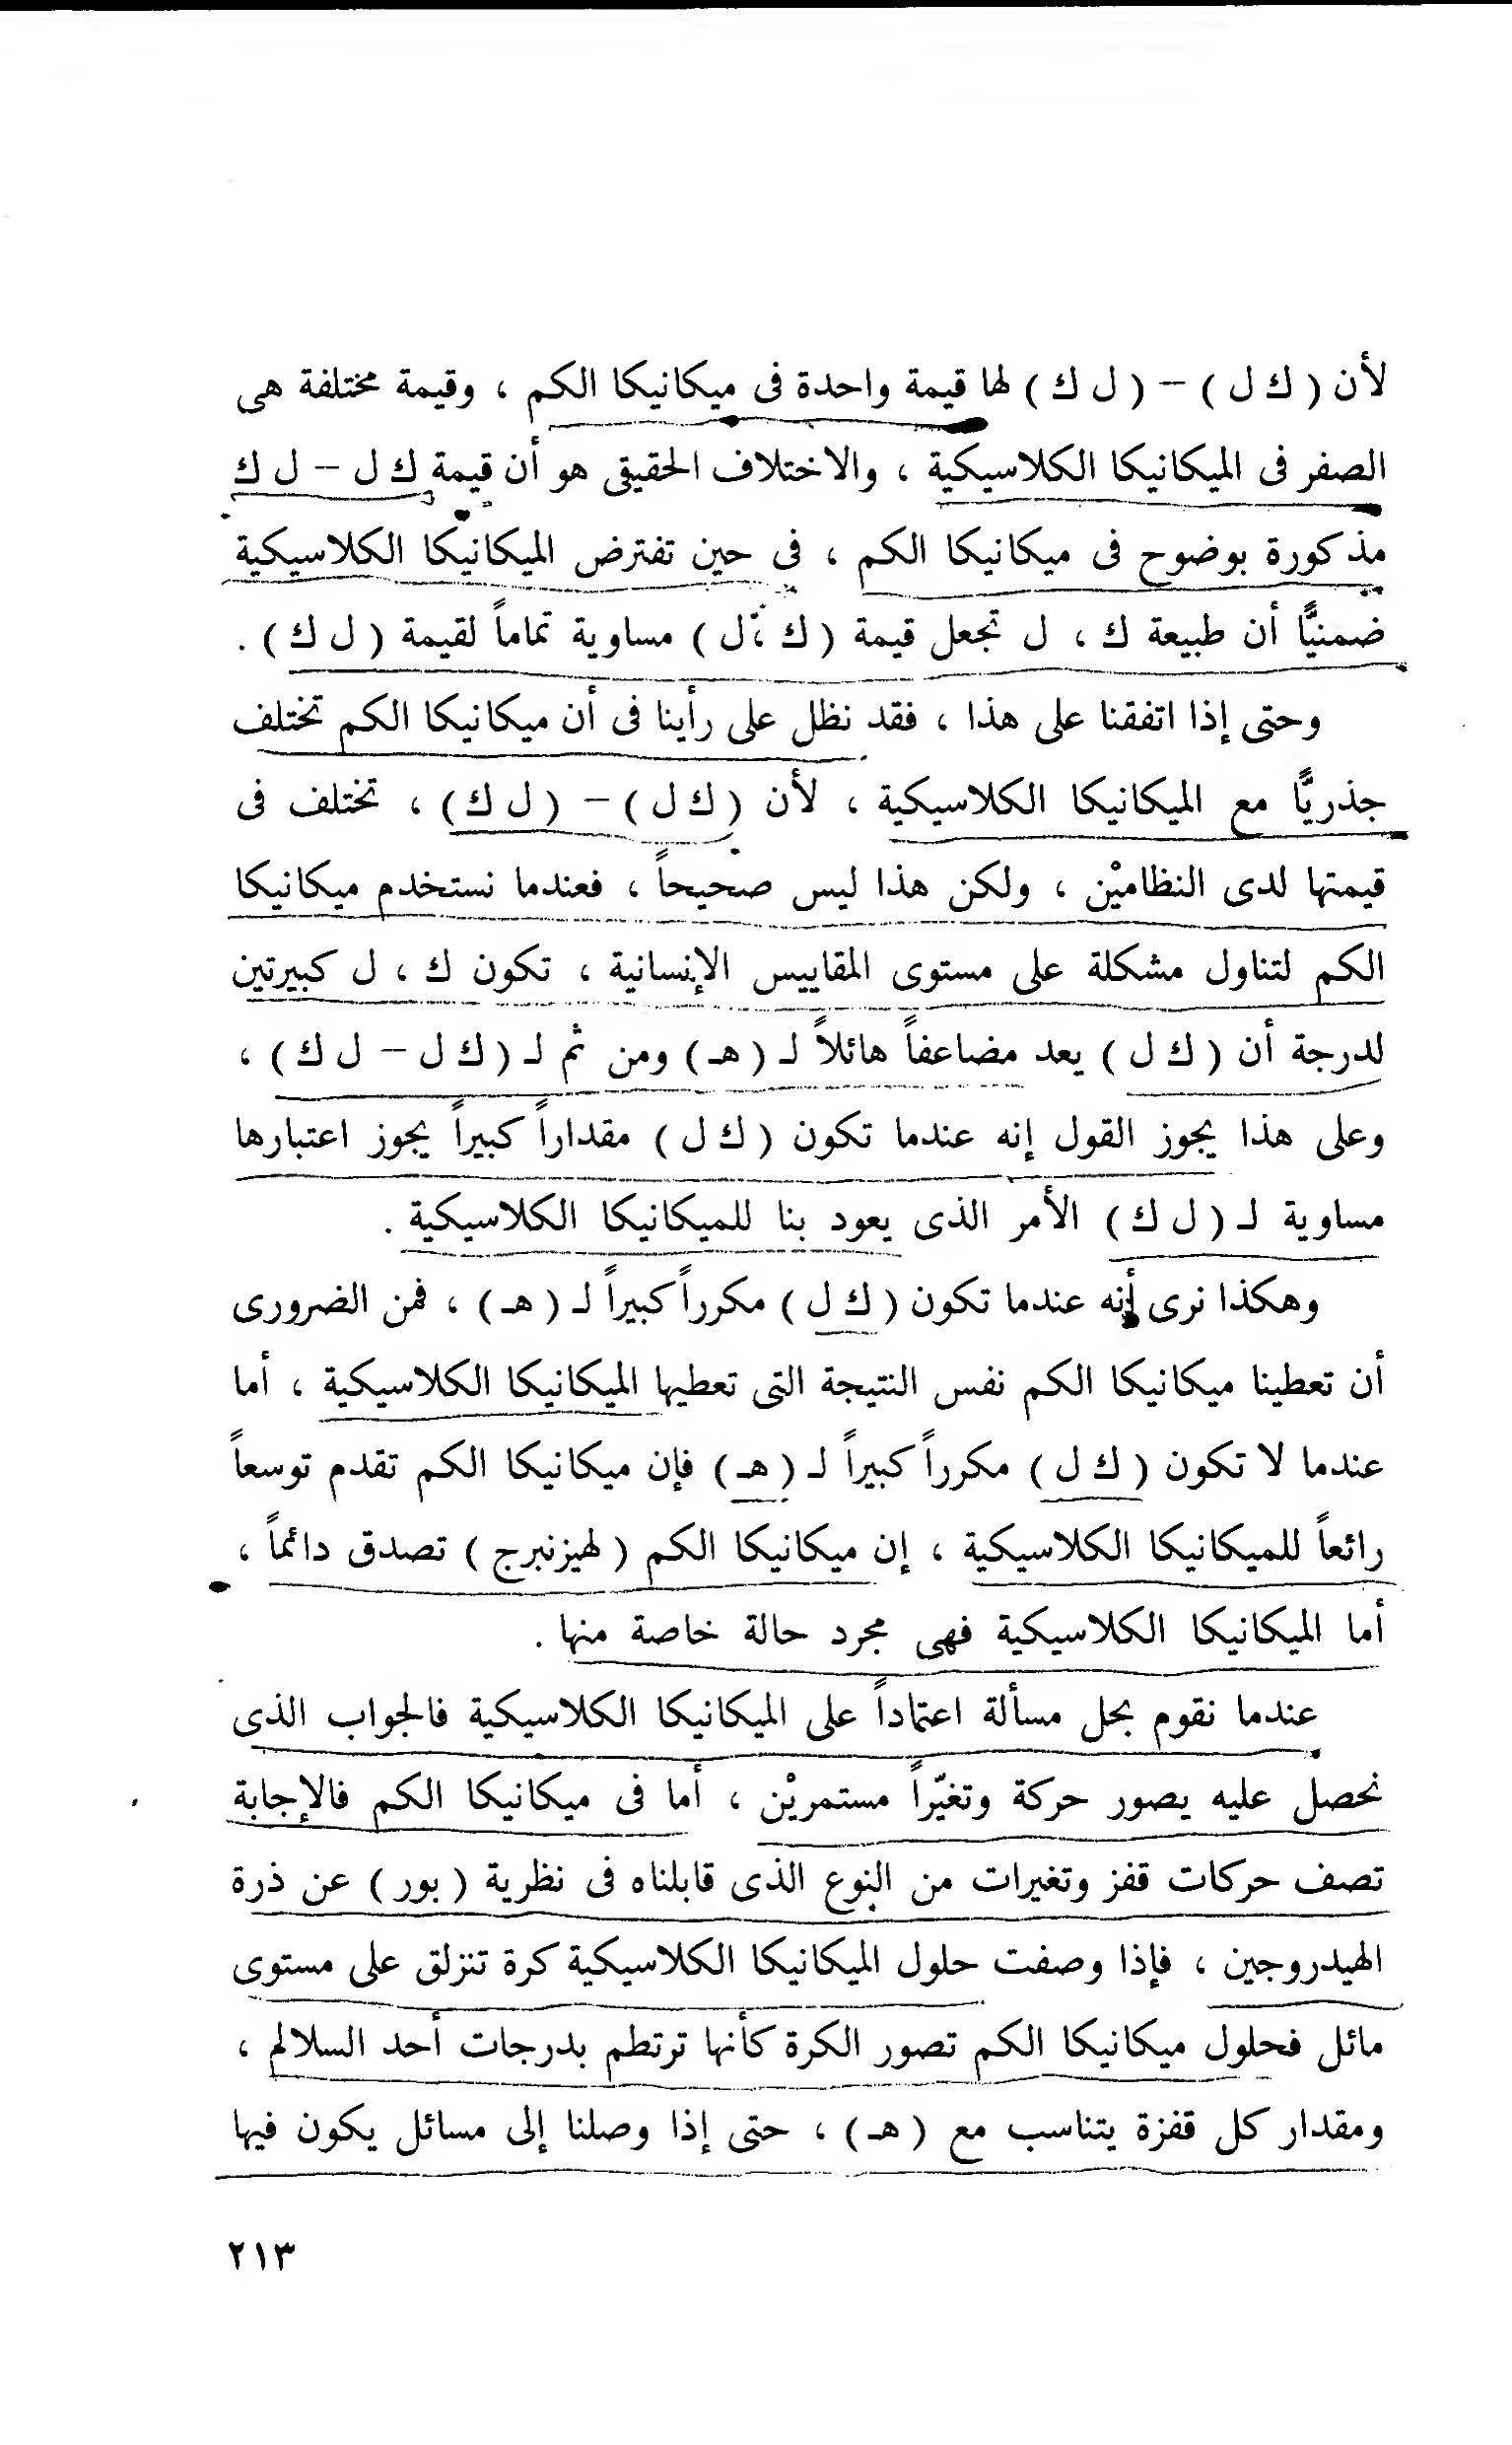 لأن ( ك ل ) – ( ل ك ) لها قيمة واحدة فى ميكانيكا الكم ، وقيمة مختلفة هى
الصفر فى الميكانيكا الكلاسيكية ، والاختلاف الحقيقى هو أن قيمة ك ل – ل ك
مذكورة بوضوح فى ميكانيكا الكم ، فى حين تفترض الميكانيكا الكلاسيكية
ضمنيًّا أن طبيعة ك ، ل تجعل قيمة ( ك ، ل ) مساوية تماماً لقيمة ( ل ك ) .
وحتى إذا اتفقنا على هذا ، فقد نظل على رأينا فى أن ميكانيكا الكم تختلف
جذريًّا مع الميكانيكا الكلاسيكية ، لأن ( ك ل ) – ( ل ك ) ، تختلف فى
قيمتها لدى النظاميْن ، ولكن هذا ليس صحيحاً ، فعندما نستخدم ميكانيكا
الكم لتناول مشكلة على مستوى المقاييس الإنسانية ، تكون ك ، ل كبيرتين
لدرجة أن ( ك ل ) يعد مضاعفاً هائلاً لـ ( هـ ) ومن ثم لـ ( ك ل – ل ك ) ،
وعلى هذا يجوز القول إنه عندما تكون ( ك ل ) مقداراً كبيراً يجوز اعتبارها
مساوية لـ ( ل ك ) الأمر الذى يعود بنا للميكانيكا الكلاسيكية .
وهكذا نرى أنه عندما تكون ( ك ل ) مكرراً كبيراً لـ ( هـ ) ، فمن الضرورى
أن تعطينا ميكانيكا الكم نفس النتيجة التى تعطيها الميكانيكا الكلاسيكية ، أما
عندما لا تكون ( ك ل ) مكرراً كبيراً لـ ( هـ ) فإن ميكانيكا الكم تقدم توسعاً
رائعاً للميكانيكا الكلاسيكية ، إن ميكانيكا الكم ( لهيزنبرج ) تصدق دائماً ،
أما الميكانيكا الكلاسيكية فهى مجرد حالة خاصة منها .
عندما نقوم بحل مسألة اعتماداً على الميكانيكا الكلاسيكية فالجواب الذى
نحصل عليه يصور حركة وتغيّراً مستمريْن ، أما فى ميكانيكا الكم فالإجابة
تصف حركات قفز وتغيرات من النوع الذى قابلناه فى نظرية ( بور ) عن ذرة
الهيدروجين ، فإذا وصفت حلول الميكانيكا الكلاسيكية كرة تنزلق على مستوى
مائل فحلول ميكانيكا الكم تصور الكرة كأنها ترتطم بدرجات أحد السلالم ،
ومقدار كل قفزة يتناسب مع ( هـ ) ، حتى إذا وصلنا إلى مسائل يكون فيها
٢١٣